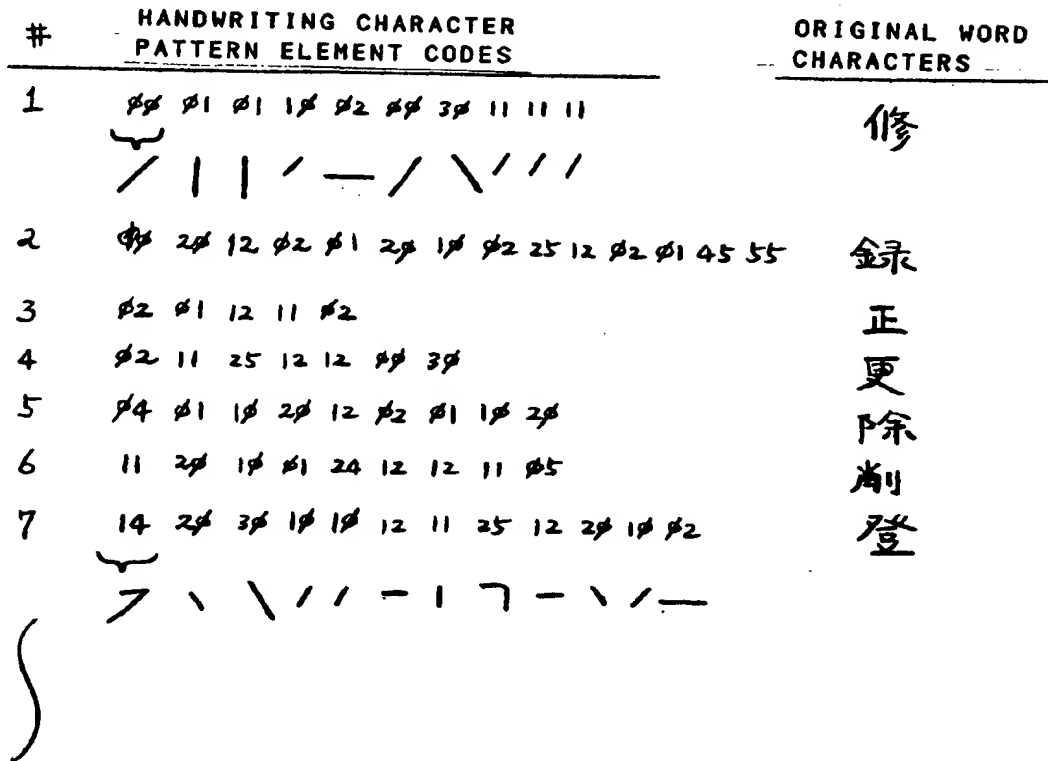 # HANDWRITING CHARACTER PATTERN ELEMENT CODES ORIGINAL WORD CHARACTERS
1 øø ø1 ø1 1ø ø2 øø 3ø 11 11 11 修
2 2ø 12 ø2 ø1 2ø 1ø ø2 25 12 ø2 ø1 45 55 録
3 ø2 ø1 12 11 ø2 正
4 ø2 11 25 12 12 øø 3ø 更
5 ø4 ø1 1ø 2ø 12 ø2 ø1 1ø 2ø 除
6 11 2ø 1ø ø1 24 12 12 11 ø5 削
7 14 2ø 3ø 1ø 1ø 12 11 25 12 2ø 1ø ø2 登